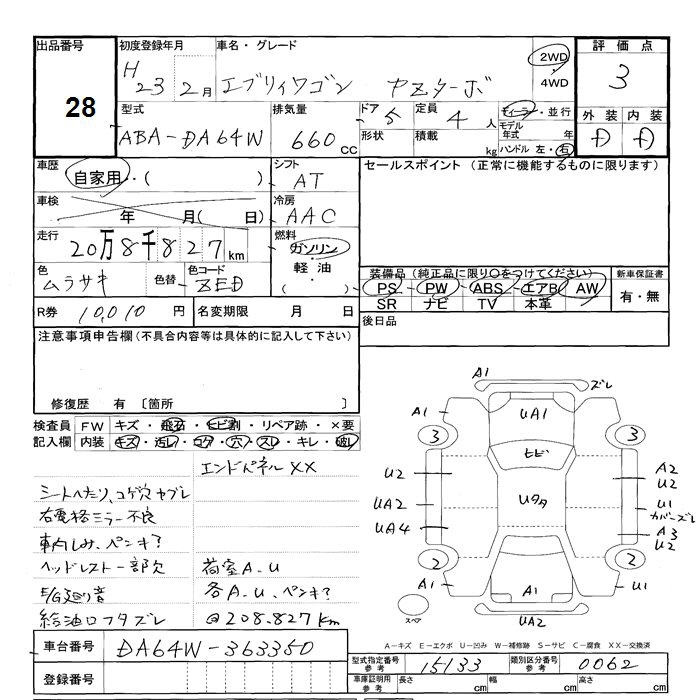 出品番号 初度登録年月 車名・グレード 評価点
28
H 23 2月 エブリィワゴン PZターボ 2WD 4WD 3
型式 排気量 ドア 定員 ディーラー・並行 外装 内装
ABA-DA64W 660cc 5 4人 モデル年式 年 D D
形状 積載 kg ハンドル 左・右
車歴 シフト セールスポイント (正常に機能するものに限ります)
自家用・( ) AT
車検 冷房
年 月( 日) AAC
走行 燃料
20万8千827km ガソリン・軽油・( )
色 色替 色コード 装備品 (純正品に限り○をつけてください) 新車保証書
ムラサキ ZED PS・PW・ABS・エアB・AW 有・無
SR ナビ TV 本革
R券 10,010円 名変期限 月 日 後日品
注意事項申告欄(不具合内容等は具体的に記入して下さい)
修復歴 有 〔箇所
検査員 FW キズ・飛石・ヒビ割・リペア跡・×要
記入欄 内装 キズ・汚レ・コゲ・穴・スレ・キレ・破レ
エンドパネルXX
シートヘタリ、コゲ穴ヤブレ
右電格ミラー不良
車内しみ、ペンキ?
ヘッドレスト一部欠 荷室A.U
E/G廻り音 各A.U、ペンキ?
給油口フタズレ @208.827km
A1 ズレ
A1 UA1
3 3
ヒビ
U2 A2 U2
UA2 Uタタ U1 カバーズレ
UA4 A3 U2
2 2
A1 A1 U1
スペア UA2
A-キズ E-エクボ U-凹み W-補修跡 S-サビ C-腐食 XX-交換済
車台番号 DA64W-363350
型式指定番号 参考 15133 類別区分番号 参考 0062
登録番号 車庫証明用 参考 長さ cm 幅 cm 高さ cm